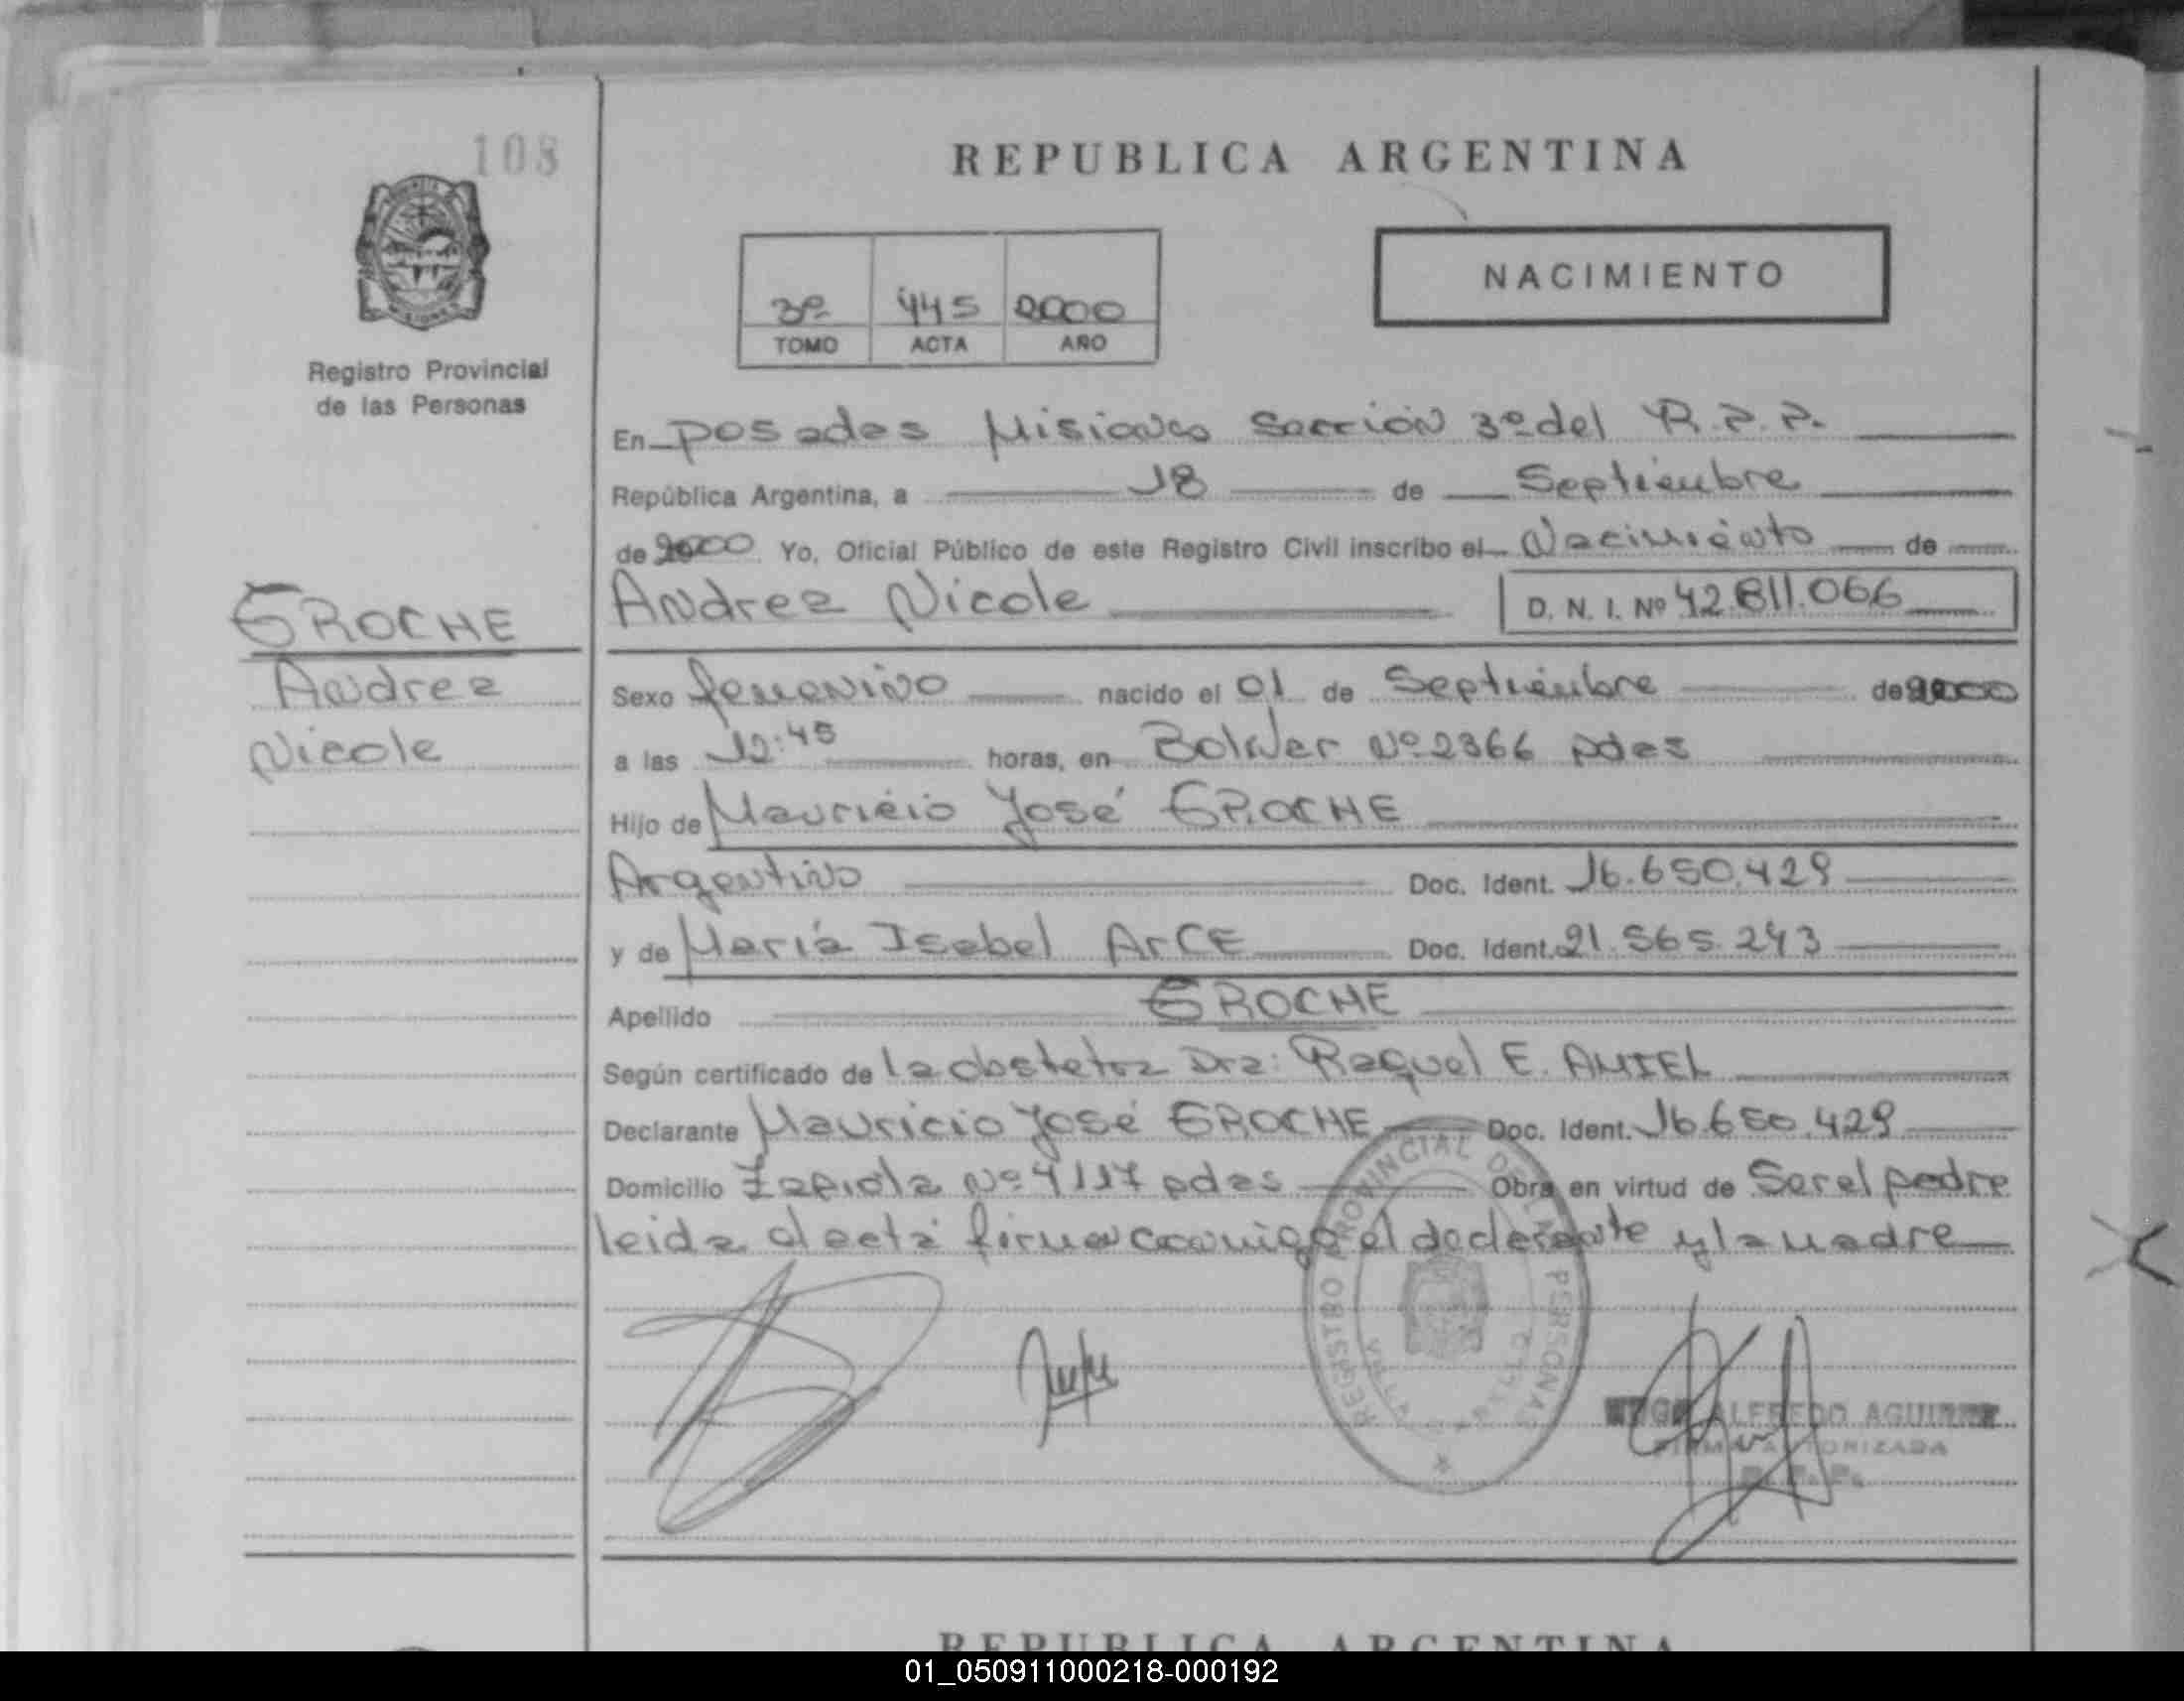 108
REPUBLICA ARGENTINA
NACIMIENTO
3º 445 2000
TOMO ACTA AÑO
Registro Provincial
de las Personas
En Posadas Misiones Sección 3º del R.P.P.
República Argentina, a 18 de Septiembre
de 2000 Yo, Oficial Público de este Registro Civil inscribo el Nacimiento de
GROCHE
Andrea Nicole D. N. I. Nº 42.811.066
Andrea
Nicole
Sexo femenino nacido el 01 de Septiembre de 2000
a las 12:45 horas, en Bolivar Nº 2366 pdas
Hijo de Mauricio José GROCHE
Argentino Doc. Ident. 16.650.429
y de María Isabel ArCE Doc. Ident. 21.565.243
Apellido GROCHE
Según certificado de la obstetra Dra: Raquel E. AMIEL
Declarante Mauricio José GROCHE Doc. Ident. 16.650.429
Domicilio Zapiola Nº 4117 pdas Obra en virtud de Ser el padre
leida el acta firman conmigo el declarante y la madre
REGISTRO PROVINCIAL DE LAS PERSONAS
ALFREDO AGUIRRE
FIRMA AUTORIZADA
R. P. P.
REPUBLICA ARGENTINA
01_050911000218-000192